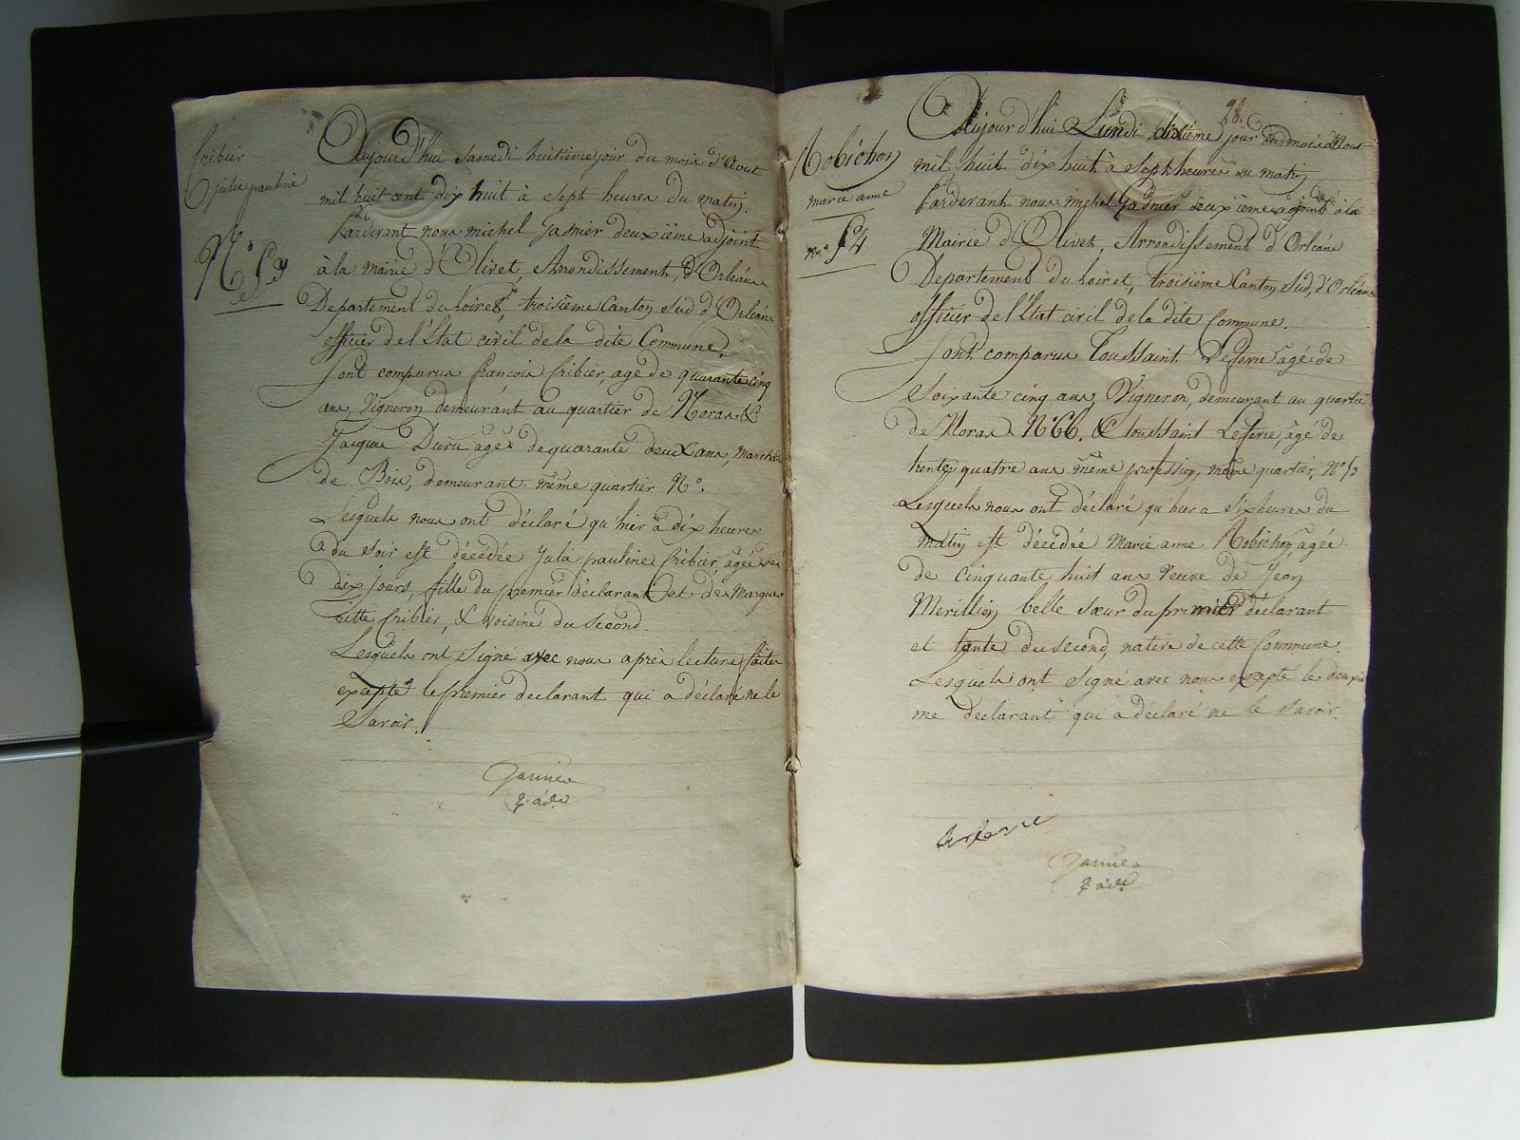 fribier
julie pauline
Aujourd'hui samedi huitieme jour du mois d'Aout
mil huit cent dix huit à sept heures du matin.
Pardevant nous michel Gasnier deuxiëme adjoint
à la mairie d'Olivet, Arrondissement, d'Orleans
Departement du Loiret, troisième Canton sud d'Orleans
officier de l'Etat civil de la dite Commune.
sont comparus francois fribier, agé de quarante cinq
ans, Vigneron demeurant au quartier de Noras &
Jacque Duru agé de quarante deux ans, marchand
de Bois, demeurant même quartier N°.
Lesquels nous ont déclaré qu'hier à dix heures
du soir est décédée Julie pauline fribier, agée de
dix jours, fille du premier déclarant et de Margue
ritte fribier, & voisine du second.
Lesquels ont signé avec nous après lecture faite
excepté le premier declarant qui a déclaré ne le
savoir.
Gasnier
98.
Robichon
marie anne
N.° 54
Aujourd'hui Lundi dixième jour du mois d'Aout
mil huit dix huit à sept heures du matin
Pardevant nous michel Gasnier deuxième adjoint à la
Mairie d'Olivet, Arrondissement d'Orléans
Departement du Loiret, troisième Canton sud, d'Orleans
officier de l'Etat civil de la dite Commune.
sont comparus Toussaint Lesserre agé de
soixante cinq ans Vigneron, demeurant au quartier
de Noras N°66. & Toussaint Lesserre, agé de
trente quatre ans même profession, même quartier, N°
Lesquels nous ont déclaré qu'hier a six heures du
matin est décédée Marie anne Robichon agée
de cinquante huit ans veuve de Jean
Merillion belle sœur du premier déclarant
et tante du second, native de cette Commune.
Lesquels ont signé avec nous excepté le deuxiè
me déclarant qui a déclaré ne le savoir.
Gasnier